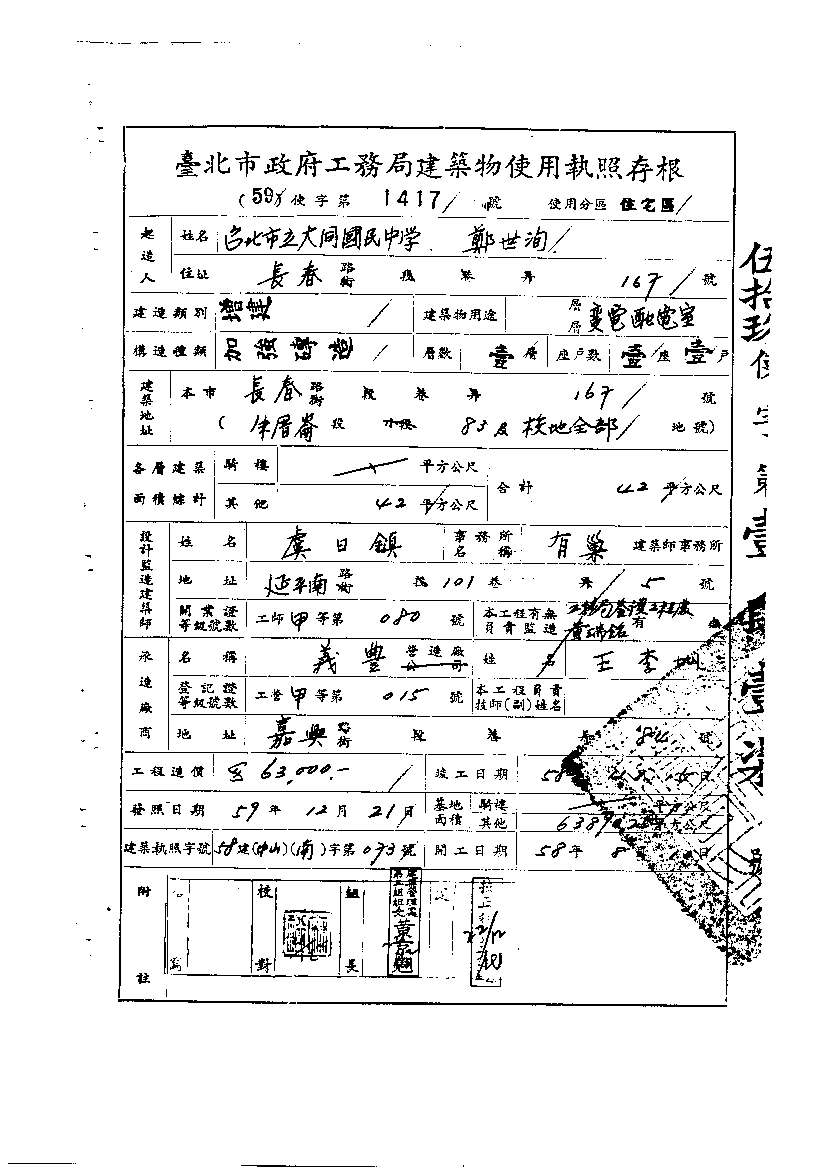 臺北市政府工務局建築物使用執照存根
(59)使字第 1417 號 使用分區 住宅區
起造人 姓名 台北市立大同國民中学 鄭世洵
住址 長春 路街 段 巷 弄 167 號
建造類別 增建 建築物用途 層層 変電配電室
構造種類 加強磚造 層數 壹層 座戶數 壹座壹戶
建築地址 本市 長春 路街 段 巷 弄 167 號
( 朱厝崙 段 小段 83及校地全部 地號)
各層建築面積總計 騎樓 平方公尺 合計 42 平方公尺
其他 42 平方公尺
設計監造建築師 姓名 虞日鎮 事務所名稱 有巢 建築師事務所
地址 延平南 路街 段 101 巷 弄 5 號
開業證等級號數 工師甲等第 080 號 本工程有無負責監造 有
承造廠商 名稱 義豐 營造廠公司 姓名 王李
登記證等級號數 工營甲等第 015 號 本工程負責技師(副)姓名
地址 嘉興 路街 段 巷 84 號
工程造價 63,000.- 竣工日期 58
發照日期 59年12月21日 基地面積 騎樓 平方公尺
其他 平方公尺
建築執照字號 58建(中山)(南)字第073號 開工日期 58年8 日
附註 校對 組長
伍拾玖使字第壹
號